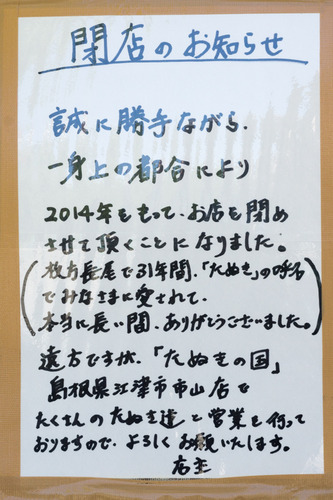 閉店のお知らせ
誠に勝手ながら、
一身上の都合により
2014年をもって、お店を閉め
させて頂くことになりました。
(枚方長尾で31年間、「たぬき」の呼名
でみなさまに愛されて、
本当に長い間、ありがとうございました。)
遠方ですが、「たぬきの国」
島根県江津市市山店で
たくさんのたぬき達と営業を行って
おりますので、よろしくお願いいたします。
店主